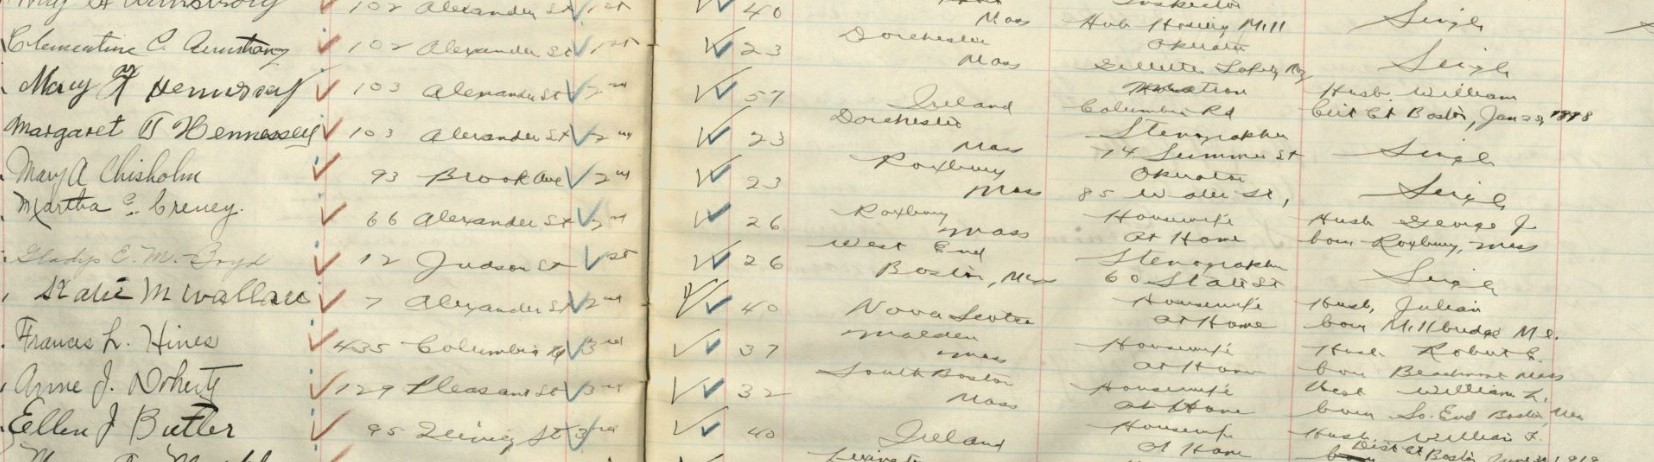 102 Alexander St 1st 40 Mass Hub Hosiery Mill Single
Clementine C. Armstrong 102 Alexander St 1st 23 Dorchester Mass Operator Gillette Safety Rz Single
Mary F Hennessey 103 Alexander St 2nd 57 Ireland Columbia Rd Husb. William Cert Ct Boston, Jan 1898
Margaret T Hennessey 103 Alexander St 2nd 23 Dorchester Mass Stenographer 74 Summer St Single
Mary A Chisholm 93 Brook Ave 2nd 23 Roxbury Mass Operator 85 Water St, Single
Martha E. Creney. 66 Alexander St 26 Roxbury Mass Housewife at Home Husb George J. born Roxbury, Mass
Gladys E. M. Boyd 12 Judson St 1st 26 West End Boston, Mass Stenographer 60 State St Single
Katie M Wallace 7 Alexander St 2nd 40 Nova Scotia Housewife at Home Husb, Julian born Millbridge Me.
Frances L. Hines 435 Columbia Rd 3rd 37 Malden Mass Housewife at Home Husb. Robert born Beachmont Mass
Anne J. Doherty 129 Pleasant St 3rd 32 South Boston Mass Housewife at Home William L. born So. End Boston, Mass
Ellen J Butler 95 St 3rd 40 Ireland Housewife at Home Husb. William F. Dist Ct Boston